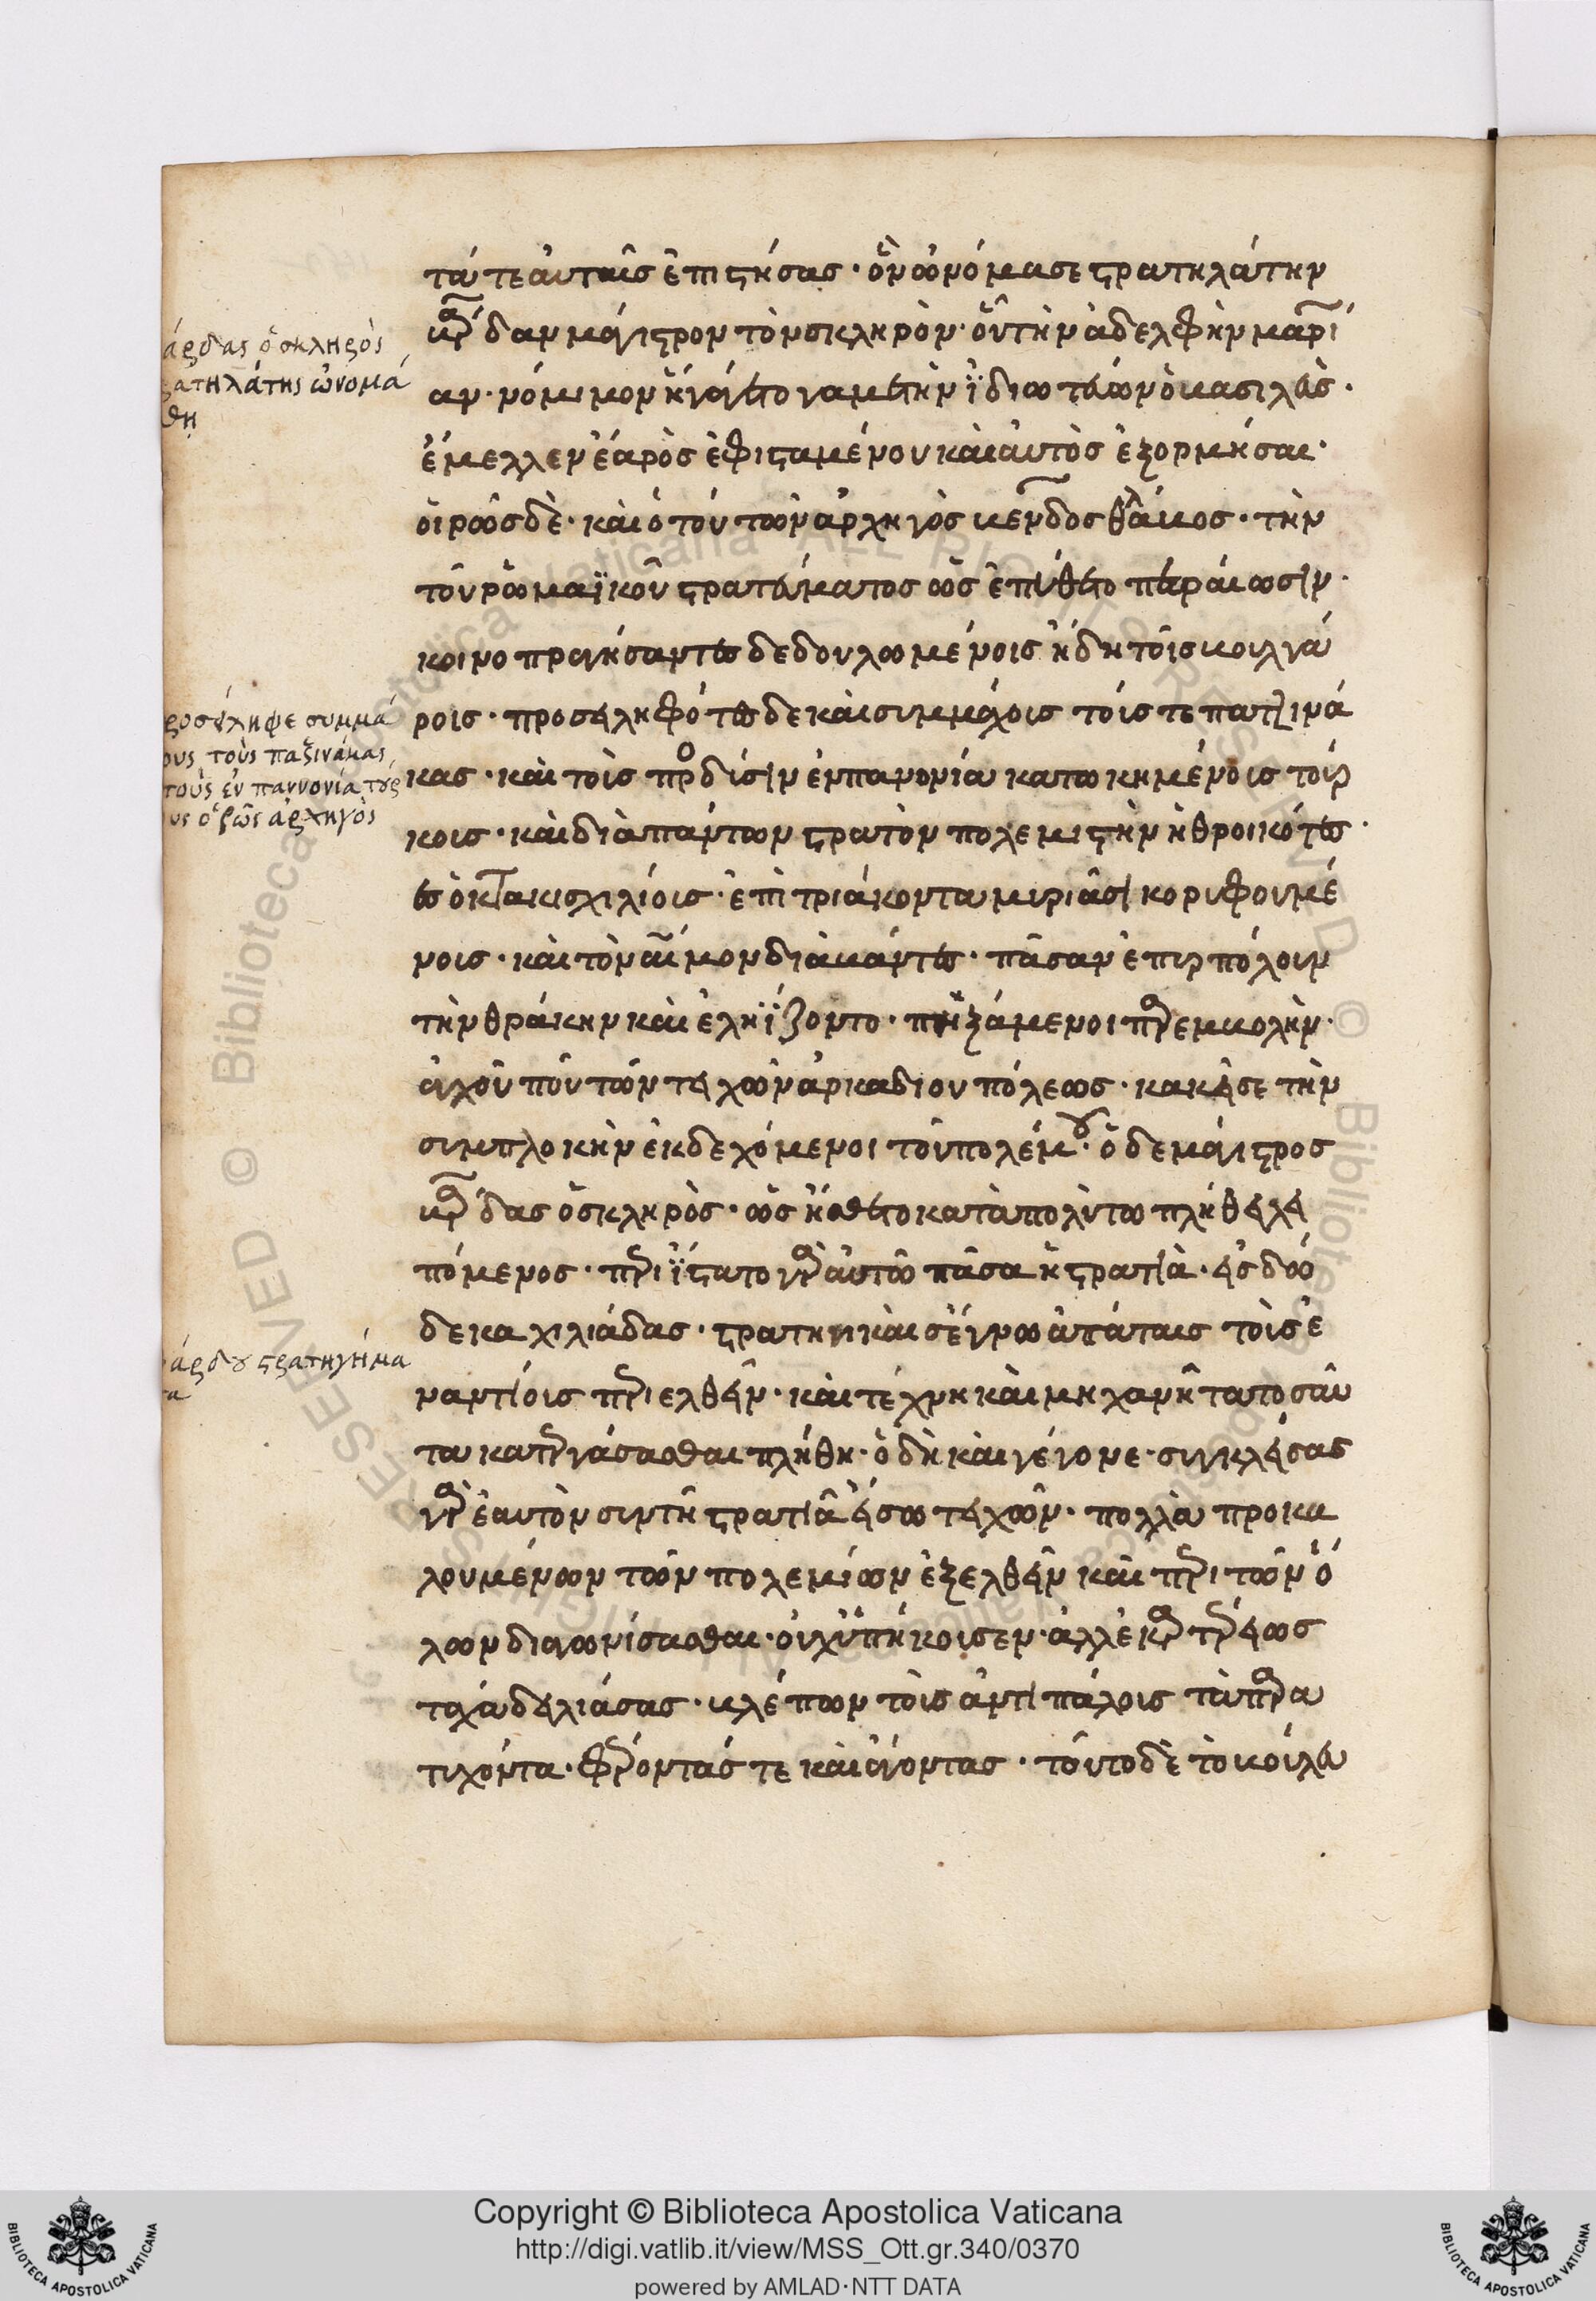 τά τε αὐταῖς ἐπιστήσας· ὃν ὠνόμασε στρατηλάτην
βάρδαν μάγιστρον τὸν σκληρὸν· οὗ τὴν ἀδελφὴν μαρί
αν· νόμιμον ἠγάγετο γαμετὴν ἰδίω τζιμισκὴσ
ἔμελλεν ἔαρος ἐφισταμένου καὶ αὐτὸς ἐξορμῆσαι·
οἱ ρῶς δὲ· καὶ ὁ τούτων ἀρχηγὸς
τοῦ ρωμαϊκοῦ στρατεύματος ὡς ἐπύθετο περαίωσιν·
κοινοπραγήσαντες δεδουλωμένοις ἤδη τοῖς βουλγά
ροις· προσειληφότες δε καὶ συμμάχοις τοῖς τε πατζινά
κας· καὶ τοῖς πρὸς δύσιν ἐν πανονία κατωκημένοις τούρ
κοις· καὶ διὰ πάντων στρατὸν πολεμιστὴν ἠθροικότες·
ἐς ὀκτακισχιλίοις· ἐπὶ τριάκοντα μυριᾶσι κορυφουμέ
νοις· καὶ τὸν αἷμον διαβάντες· πᾶσαν ἐπυρπόλουν
τὴν θράκην καὶ ἐληΐζοντο· πηξάμενοι παρεμβολὴν·
ἀγχοῦ που τῶν τειχῶν ἀρκαδιουπόλεως· κακεῖσε τὴν
συμπλοκὴν ἐκδεχόμενοι τοῦ πολέμου· ὁ δε μάγιστρος
βάρδας ὁ σκληρὸς· ὡς ᾔσθετο κατὰ πολὺ τω πλήθει λει
πόμενος· περιΐστατο γὰρ αὐτῶ πᾶσα ἡ στρατιὰ· εἰς δώ
δεκα χιλιάδας· στρατηγικαῖς ἔγνω ἀπάταις τοῖς ἐ
ναντίοις περιελθεῖν· καὶ τέχνη καὶ μηχανῆ τα τοσαῦ
τα κατεργάσασθαι πλήθη· ὁ δὴ καὶ γέγονε· συγκλείσας
γὰρ ἑαυτὸν συν τῆ στρατιᾶ εἴσω τειχῶν· πολλὰ προκα
λουμένων τῶν πολεμίων ἐξελθεῖν καὶ περι τῶν ὅ
λων διαγωνίσασθαι· οὐχ ὑπήκουσεν· ἀλλ' ἐκαρτέρει ὡς
τάχα δειλιάσας· βλέπων τοῖς ἀντιπάλοις τὰ παρα
τυχόντα· φέροντάς τε καὶ ἄγοντας· τοῦτο δὲ τὸ βούλευ
άρδας ὁ σκληρὸς
ρατηλάτης ὠνομά
θη
ροσείληφε συμμά
ους τοὺς παζινάκας
τοὺς ἐν παννονία τού
υς ὁ ῥῶς ἀρχηγὸς
άρδου στρατηγήμα
τα
Copyright © Biblioteca Apostolica Vaticana
http://digi.vatlib.it/view/MSS_Ott.gr.340/0370
powered by AMLAD·NTT DATA